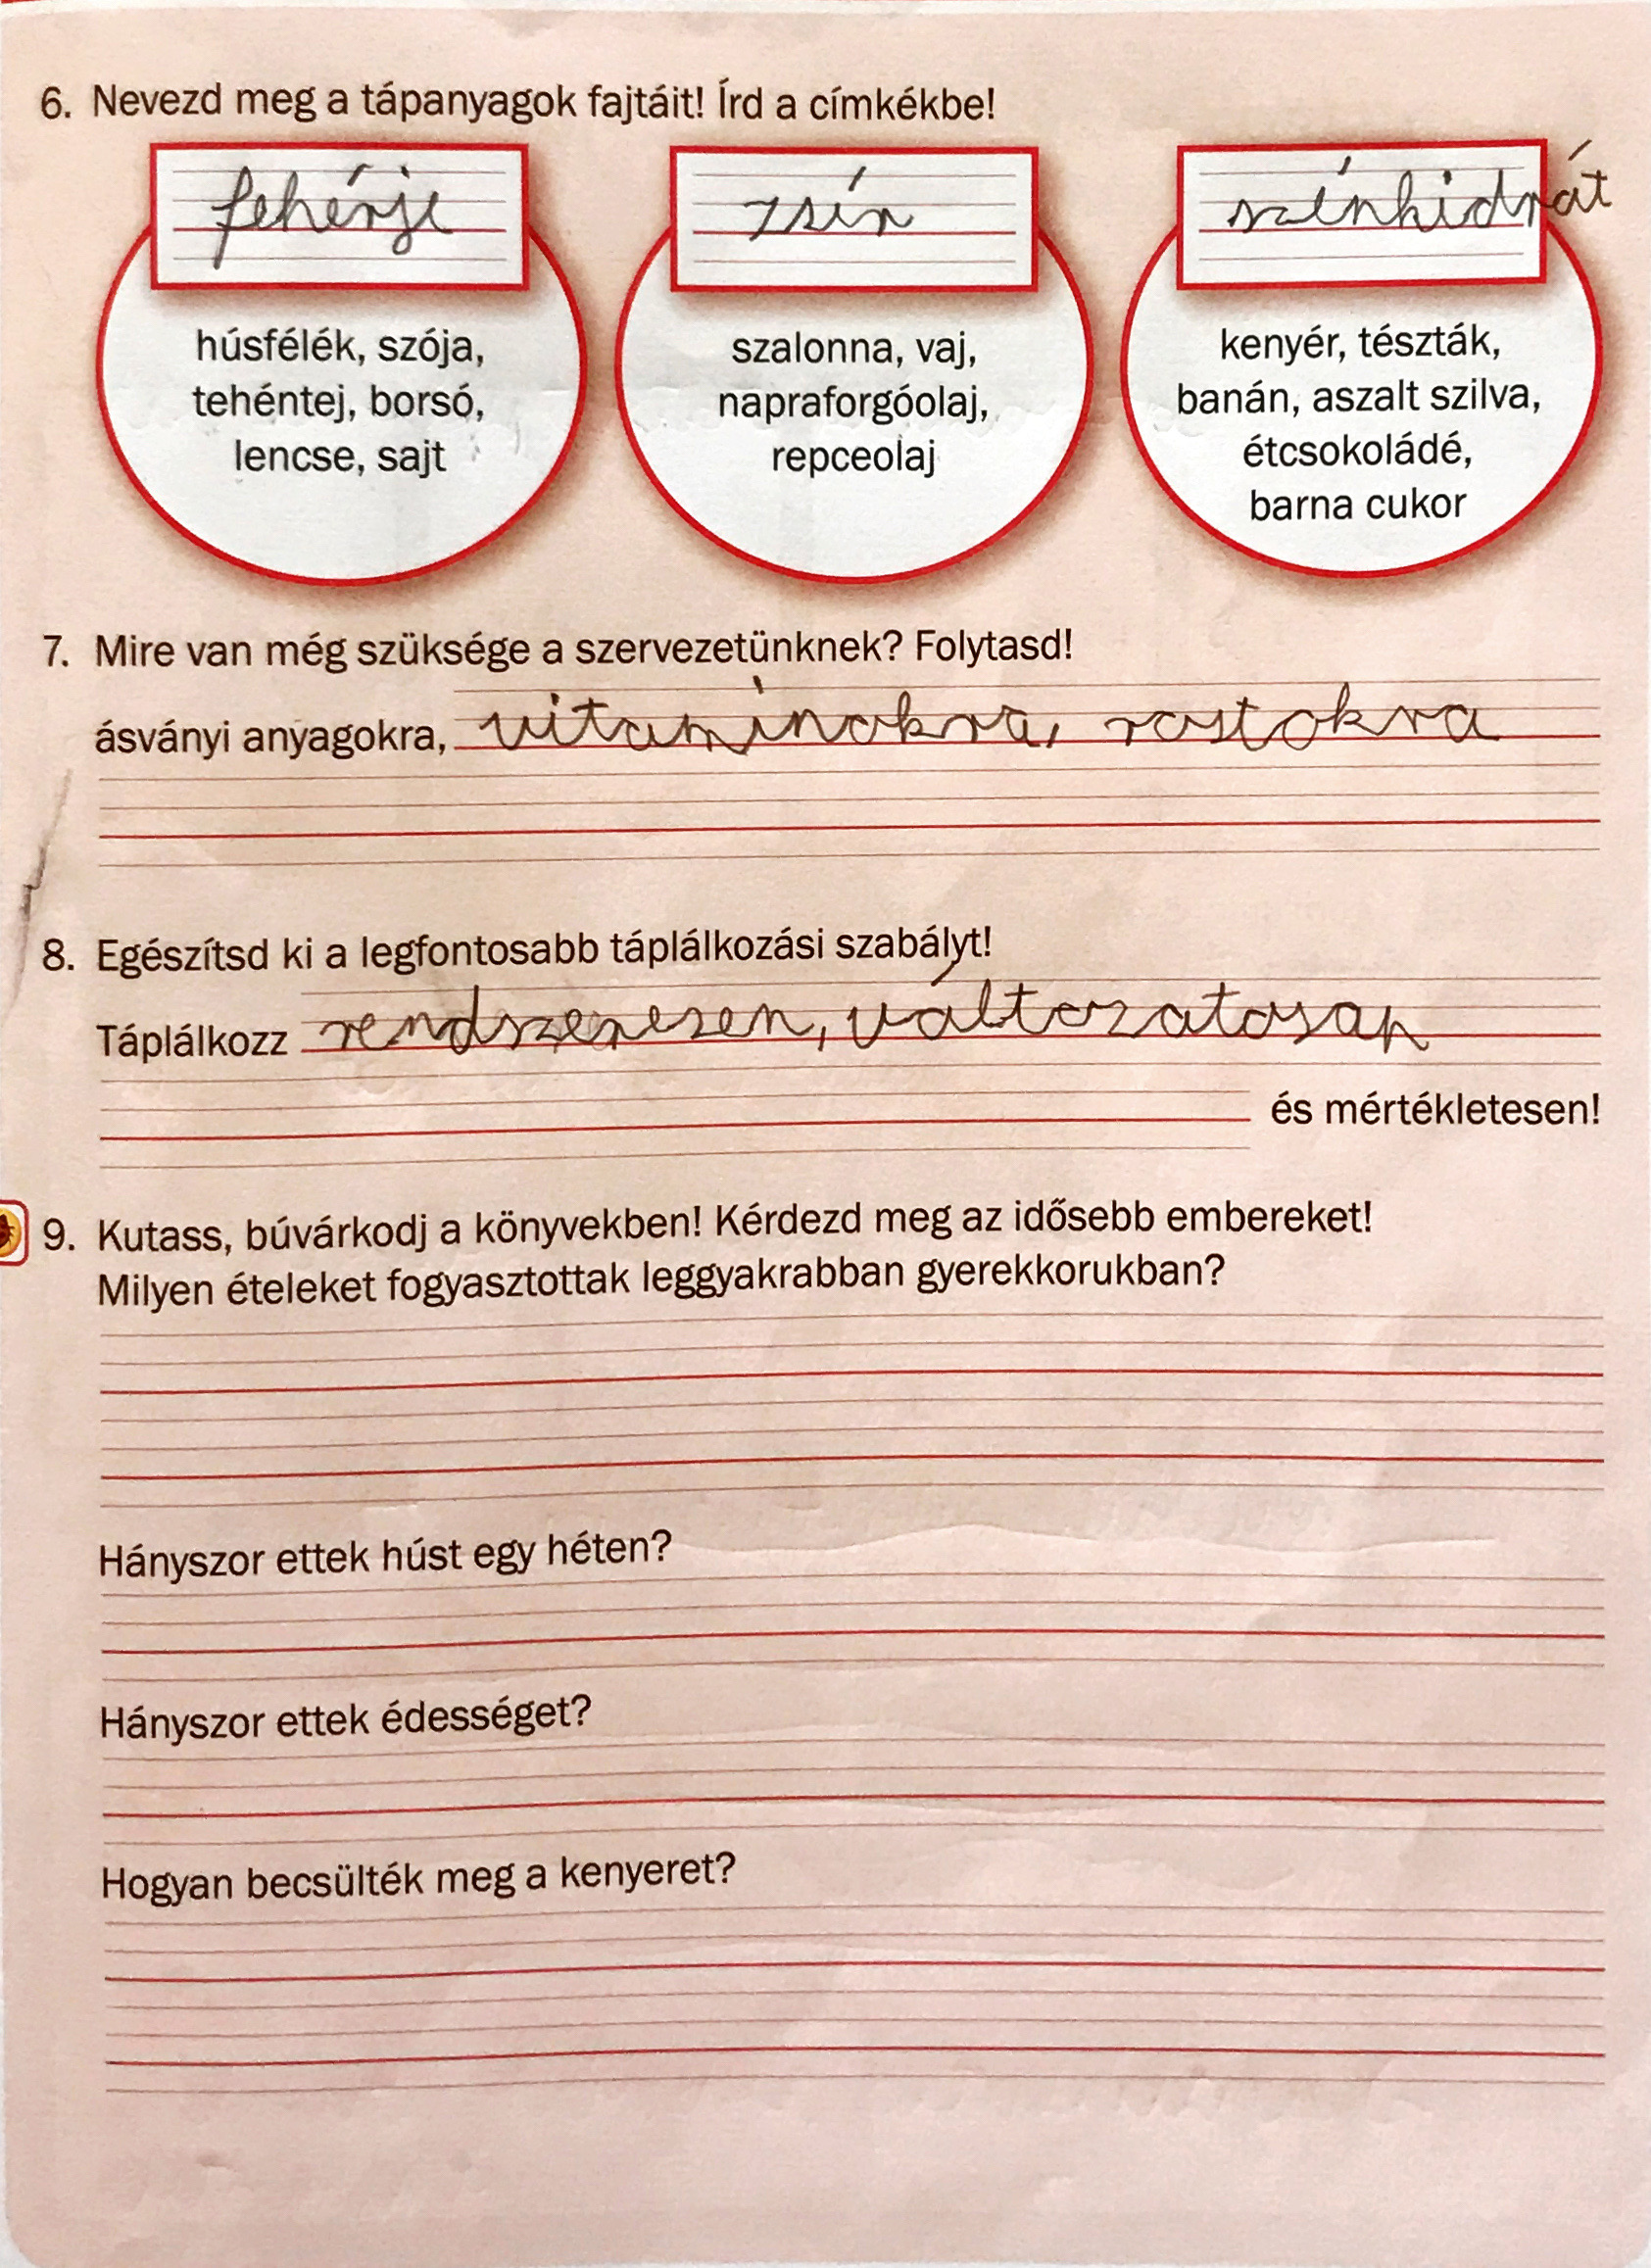 6. Nevezd meg a tápanyagok fajtáit! Írd a címkékbe!
fehérje
zsír
szénhidrát
húsfélék, szója,
tehéntej, borsó,
lencse, sajt
szalonna, vaj,
napraforgóolaj,
repceolaj
kenyér, tészták,
banán, aszalt szilva,
étcsokoládé,
barna cukor
7. Mire van még szüksége a szervezetünknek? Folytasd!
ásványi anyagokra, vitaminokra, rostokra
8. Egészítsd ki a legfontosabb táplálkozási szabályt!
Táplálkozz rendszeresen, változatosan
és mértékletesen!
9. Kutass, búvárkodj a könyvekben! Kérdezd meg az idősebb embereket!
Milyen ételeket fogyasztottak leggyakrabban gyerekkorukban?
Hányszor ettek húst egy héten?
Hányszor ettek édességet?
Hogyan becsülték meg a kenyeret?